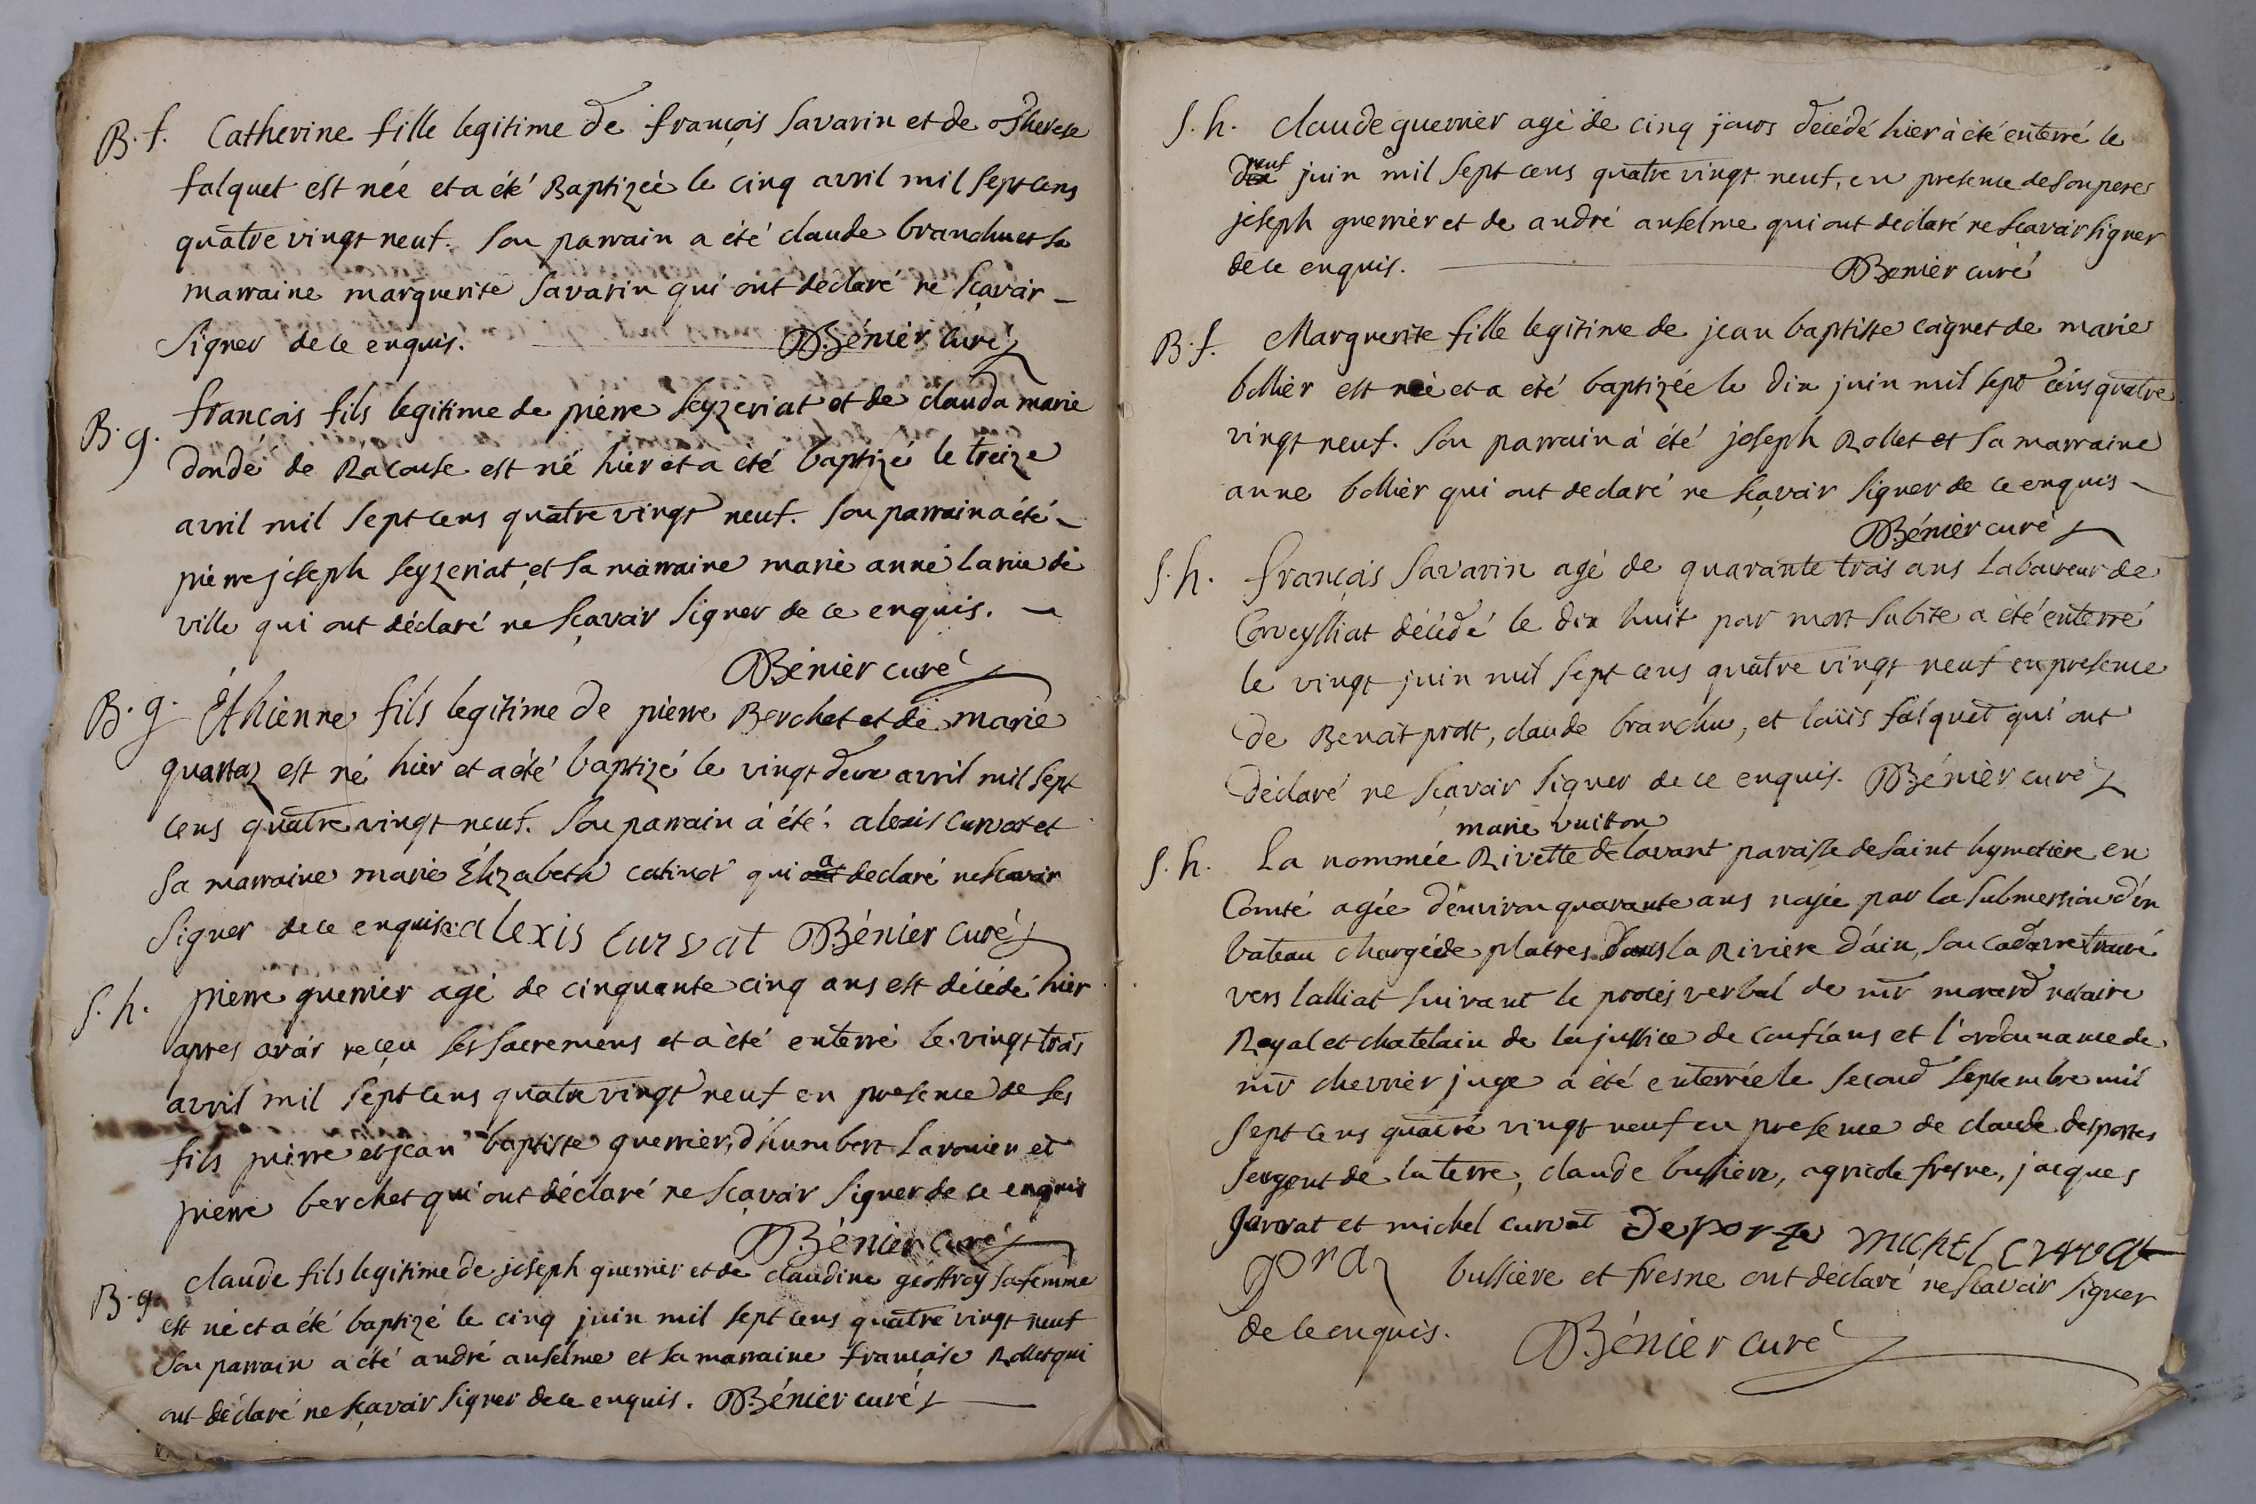 B. f. Catherine fille legitime de françois Savarin et de Therese
falquet est née et a été Baptizée le cinq avril mil sept cens
quatre vingt neuf. Son parrain a été claude branchu et sa
marraine marguerite Savarin qui ont déclaré ne sçavoir
signer de ce enquis. Bénier curé
B. g. francois fils legitime de pierre seyzeriat et de clauda marie
dondé de Racouse est né hier et a été baptizé le treize
avril mil sept cens quatre vingt neuf. Son parrain a été
pierre joseph seyzeriat et sa marraine marie anne
ville qui ont déclaré ne sçavoir signer de ce enquis.
Bénier curé
B. g. Éthienne fils legitime de pierre Berchet et de marie
quartaz est né hier et a été baptizé le vingt deux avril mil sept
cens quatre vingt neuf. Son parrain à été alexis curvat et
sa marraine marie Élizabeth catinot qui a ont declaré ne scavoir
signer de ce enquise. alexis curvat Bénier curé
S. h. pierre guerrier agé de cinquante cinq ans est décédé hier
apres avoir reçeu ses sacremens et a été enterré le vingt trois
avril mil sept cens quatre vingt neuf en presence de ses
fils pierre et jean baptiste guerrier, d'humbert Laronier et
pierre berchet qui ont déclaré ne sçavoir signer de ce enquis
Bénier curé
B. g. claude fils legitime de joseph guerrier et de claudine geoffroy sa femme
est né et a été baptizé le cinq juin mil sept cens quatre vingt neuf
Son parrain a été andré anselme et sa marraine françoise Rollet qui
ont déclaré ne sçavoir signer de ce enquis. Bénier curé
S. h. claude guerrier agé de cinq jours décédé hier à été enterré le
neuf
dix juin mil sept cens quatre vingt neuf, en presence de son pere
joseph guerrier et de andré anselme qui ont declaré ne sçavoir signer
de ce enquis. Bénier curé
B. f. Marguerite fille legitime de jean baptiste cagnet de marie
bollier est née et a été baptizée le dix juin mil sept cens quatre
vingt neuf. Son parrain à été joseph Rollet et sa marraine
anne bollier qui ont declaré ne sçavoir signer de ce enquis
Bénier curé
S. h. françois Savarin agé de quarante trois ans Laboureur de
Corveyssiat décédé le dix huit par mort subite a été enterré
le vingt juin mil sept cens quatre vingt neuf en presence
de Benoit prost, claude branchu, et loüis falquet qui ont
déclaré ne sçavoir signer de ce enquis. Bénier curé
marie vuiton
S. h. La nommée Rivette de lavant paroisse de saint hymetière en
Comté agée d'environ quarante ans noyée par la submersion d'un
bateau chargé de platres dans la Riviere d'ain, son cadavre trouvé
vers lalliat suivant le procés verbal de mr morard notaire
Royal et chatelain de la justice de conflans et l'ordonnance de
mr chevrier juge a été enterrée le second septembre mil
sept cens quatre vingt neuf en presence de claude desportes
sergent de la terre, claude bussiere, agricole fresne, jacques
Javorat et michel curvat Deporte MICHEL Curvat
bussiere et fresne ont déclaré ne scavoir signer
de ce enquis. Bénier curé